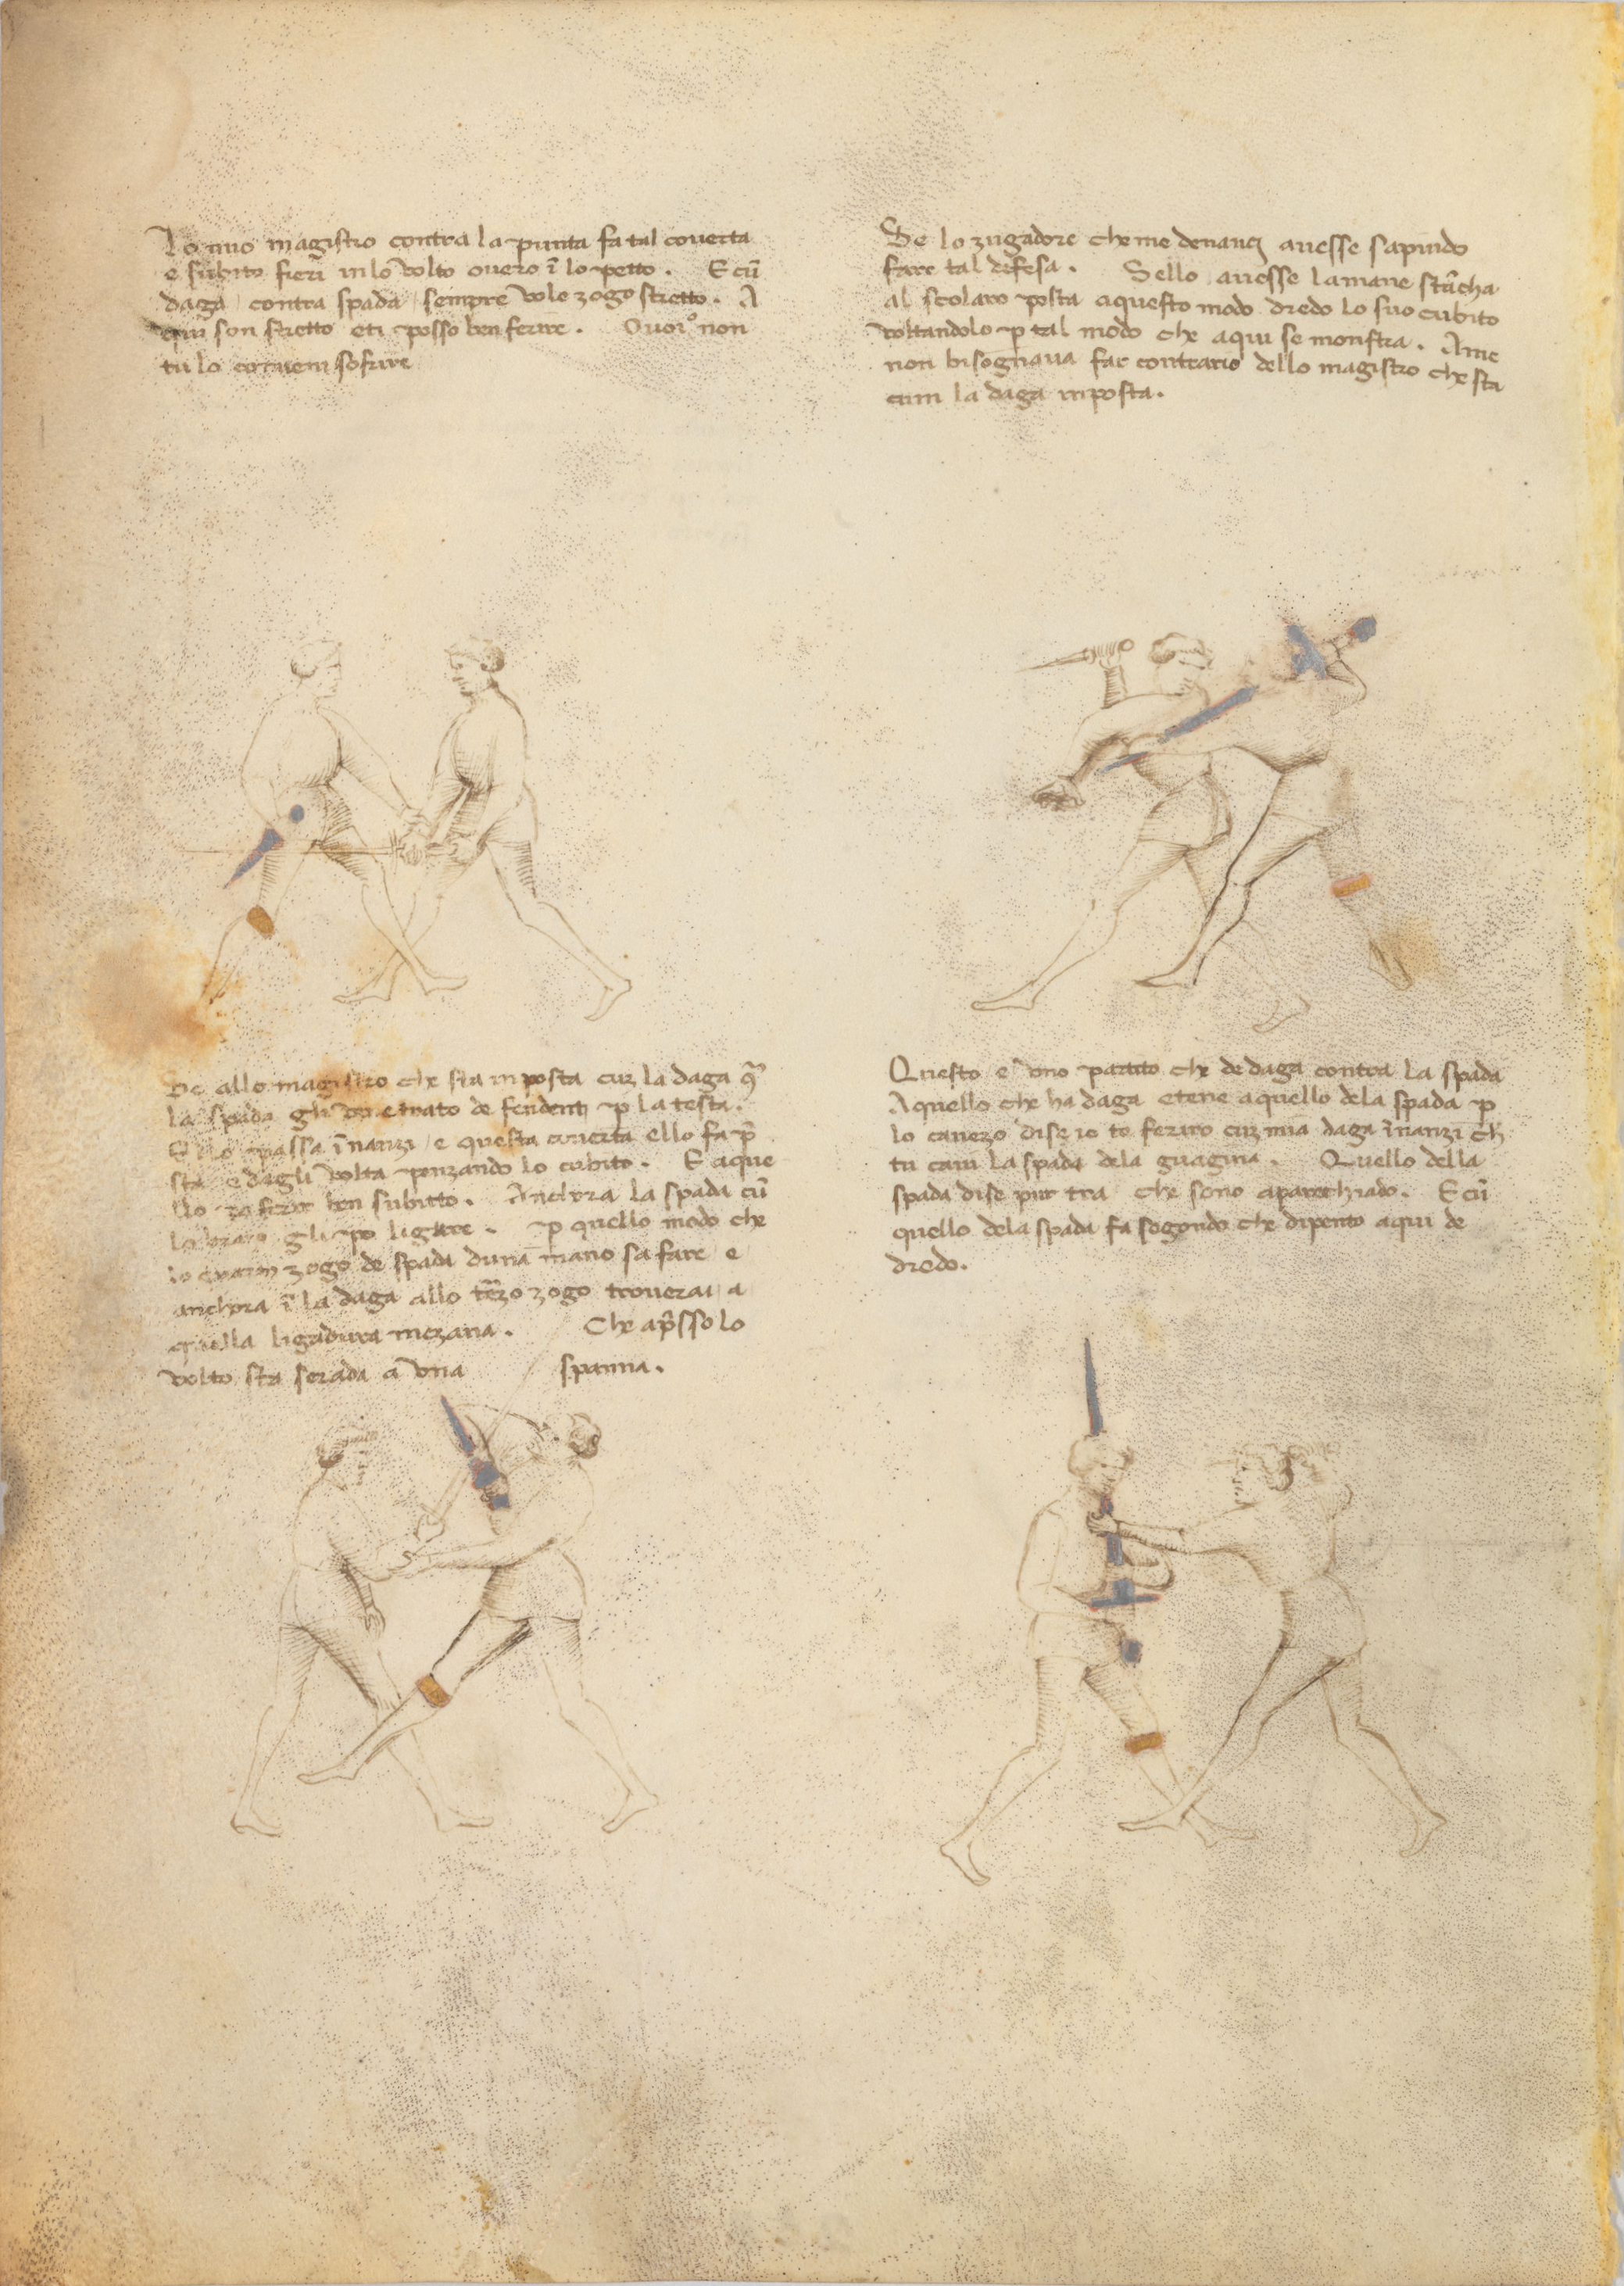 Lo mio magistro contra la punta fa tal coverta
e subito fieri in lo volto overo ī lo petto. E cū
daga contra spada sempre vole zogo stretto. A
qui son stretto e ti posso ben ferire. O voi o non
tu lo convem sofrire
Se lo zugadore che me denanci avesse sapudo
fare tal defesa. Sello avesse la mane stācha
al scolaro posta a questo modo dredo lo suo cubito
voltandolo p tal modo che aqui se monstra. A me
non bisognava far contrario dello magistro che sta
cum la daga in posta.
Se allo magistro che sta in posta cuz la daga
la spada gli ven trato de fendent p la testa.
Ello passa īnanzi e questa coverta ello fa p̄
sta e dagli volta penzando lo cubito. E aque
llo po ferir ben subitto. Anchora la spada cū
lo brazo gli po ligare. p quello modo che
lo zogo de spada duna mano sa fare e
anchora ī la daga allo terzo zogo troverai a
quella ligadura mezana. Che ap̄sso lo
volto sta serada a una spanna.
Questo e uno partito che de daga contra la spada
Aquello che ha daga e tene aquello dela spada p
lo cavezo dise io te feriro cuz mia daga īnanzi ch̄
tu cavi la spada dela guagina. Quello della
spada dise pur tra che sono aparechiado. E cū
quello dela spada fa segondo che dipento aqui de
dredo.